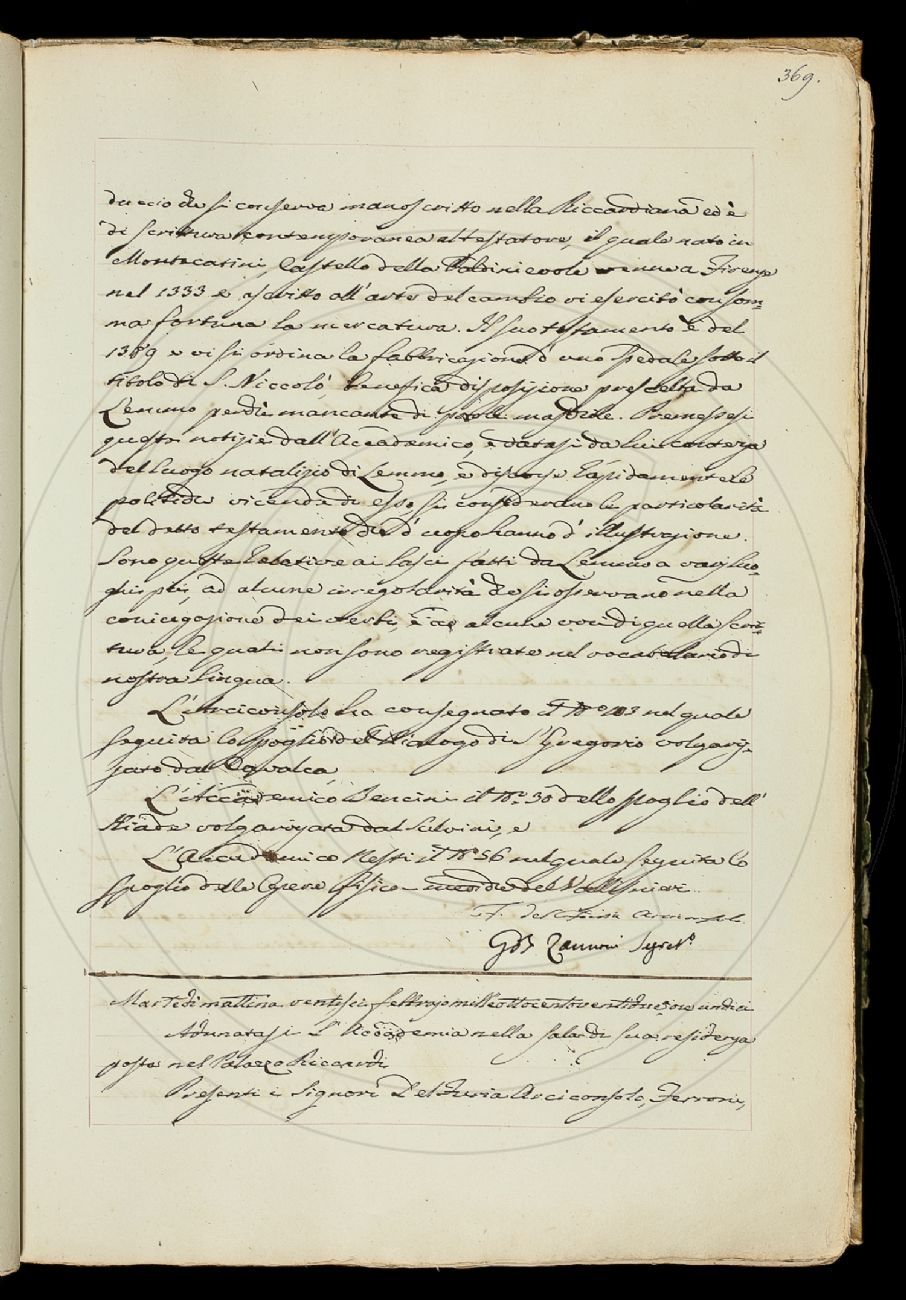 369.
duccio che si conserva manoscritto nella Riccardiana ed è
di scrittura contemporanea al testatore, il quale nato in
Montecatini, Castello della Valdinievole venne a Firenze
nel 1333 e ascritto all'arte del cambio vi esercitò con som=
ma fortuna la mercatura. Il suo testamento è del
1389 e vi si ordina la fabbricazione d'uno spedale sotto il
titolo di S. Niccolò, benefica disposizione prescelta da
Lemmo perchè mancante di prole maschile. Premessesi
queste notizie dall'Accademico, e datasi da lui contezza
del luogo natalizio di Lemmo, e discorse rapidamente le
politiche vicende di esso, si considerano le particolarità
del detto testamento che d'uopo hanno d'illustrazione.
Sono queste relative ai lasci fatti da Lemmo a varj luo=
ghi pii, ad alcune irregolarità che si osservano nella
coniugazione dei verbi, e ad alcune voci di quella scrit=
tura, le quali non sono registrate nel vocabolario di
nostra lingua.
L'Arciconsolo ha consegnato il N.º 103 nel quale
seguita lo spoglio del Dialogo di S. Gregorio volgariz=
zato dal Cavalca
L'Accademico Bencini il N.º 30 dello spoglio dell'
Iliade volgarizzata dal Salvini, e
L'Accademico Nesti il N.º 56 nel quale seguita lo
spoglio delle Opere fisico-mediche del Vallisnieri.
F. Del Furia Arciconsolo
G. B. Zannoni Segret.º
Martedì mattina ventisei febbrajo milleottocentoventidue a ore undici
Adunatasi l'Accademia nella sala di sua residenza
posta nel Palazzo Riccardi
Presenti i Signori Del Furia Arciconsolo, Ferroni,